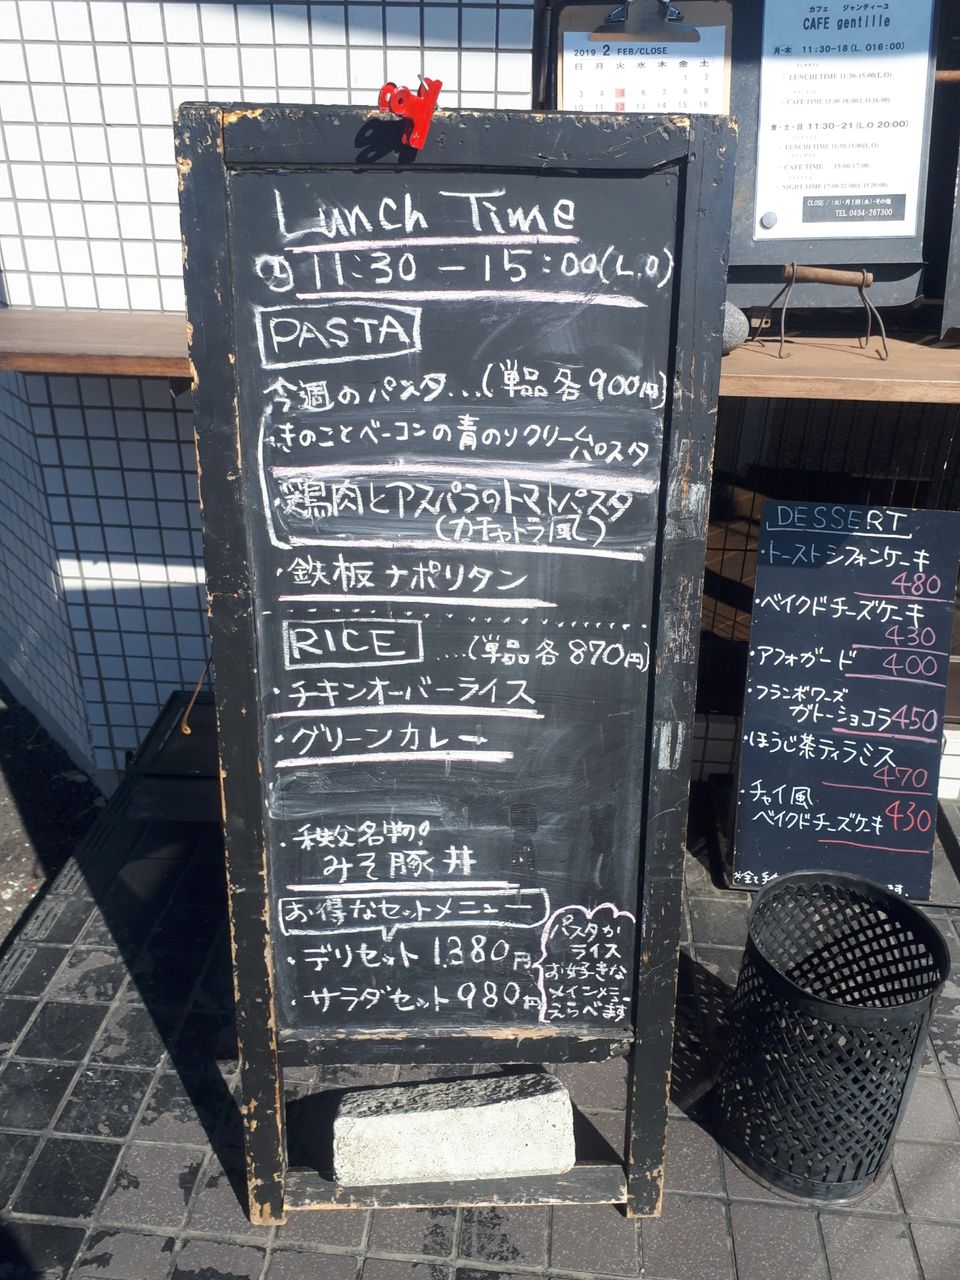 Lunch Time
11:30-15:00(L.O)
PASTA
今週のパスタ...(単品各900円)
・きのことベーコンの青のりクリーム
パスタ
・鶏肉とアスパラのトマトパスタ
(カチャトラ風)
・鉄板ナポリタン
RICE ....(単品各870円)
・チキンオーバーライス
・グリーンカレー
・秩父名物!
みそ豚丼
お得なセットメニュー
・デリセット 1,380円
・サラダセット 980円
パスタか
ライス
お好きな
メインメニュー
えらべます
DESSERT
・トーストシフォンケーキ
480
・ベイクドチーズケーキ
430
・アフォガード 400
・フランボワーズ
ガトーショコラ 450
・ほうじ茶ティラミス
470
・チャイ風
ベイクドチーズケーキ 430
2019 2 FEB/CLOSE
日 月 火 水 木 金 土
1 2
3 4 5 6 7 8 9
10 11 12 13 14 15 16
カフェ ジャンティーユ
CAFE gentille
月-木 11:30-18(L.O16:00)
LUNCH TIME 11:30-15:00(L.O)
CAFE TIME 15:00-18:00(L.O 16:00)
金・土・日 11:30-21(L.O 20:00)
LUNCH TIME 11:30-15:00(L.O)
CAFE TIME 15:00-17:00
NIGHT TIME 17:00-21:00(L.O 20:00)
CLOSE / (火)・月1回(水)・その他
TEL 0494-267300